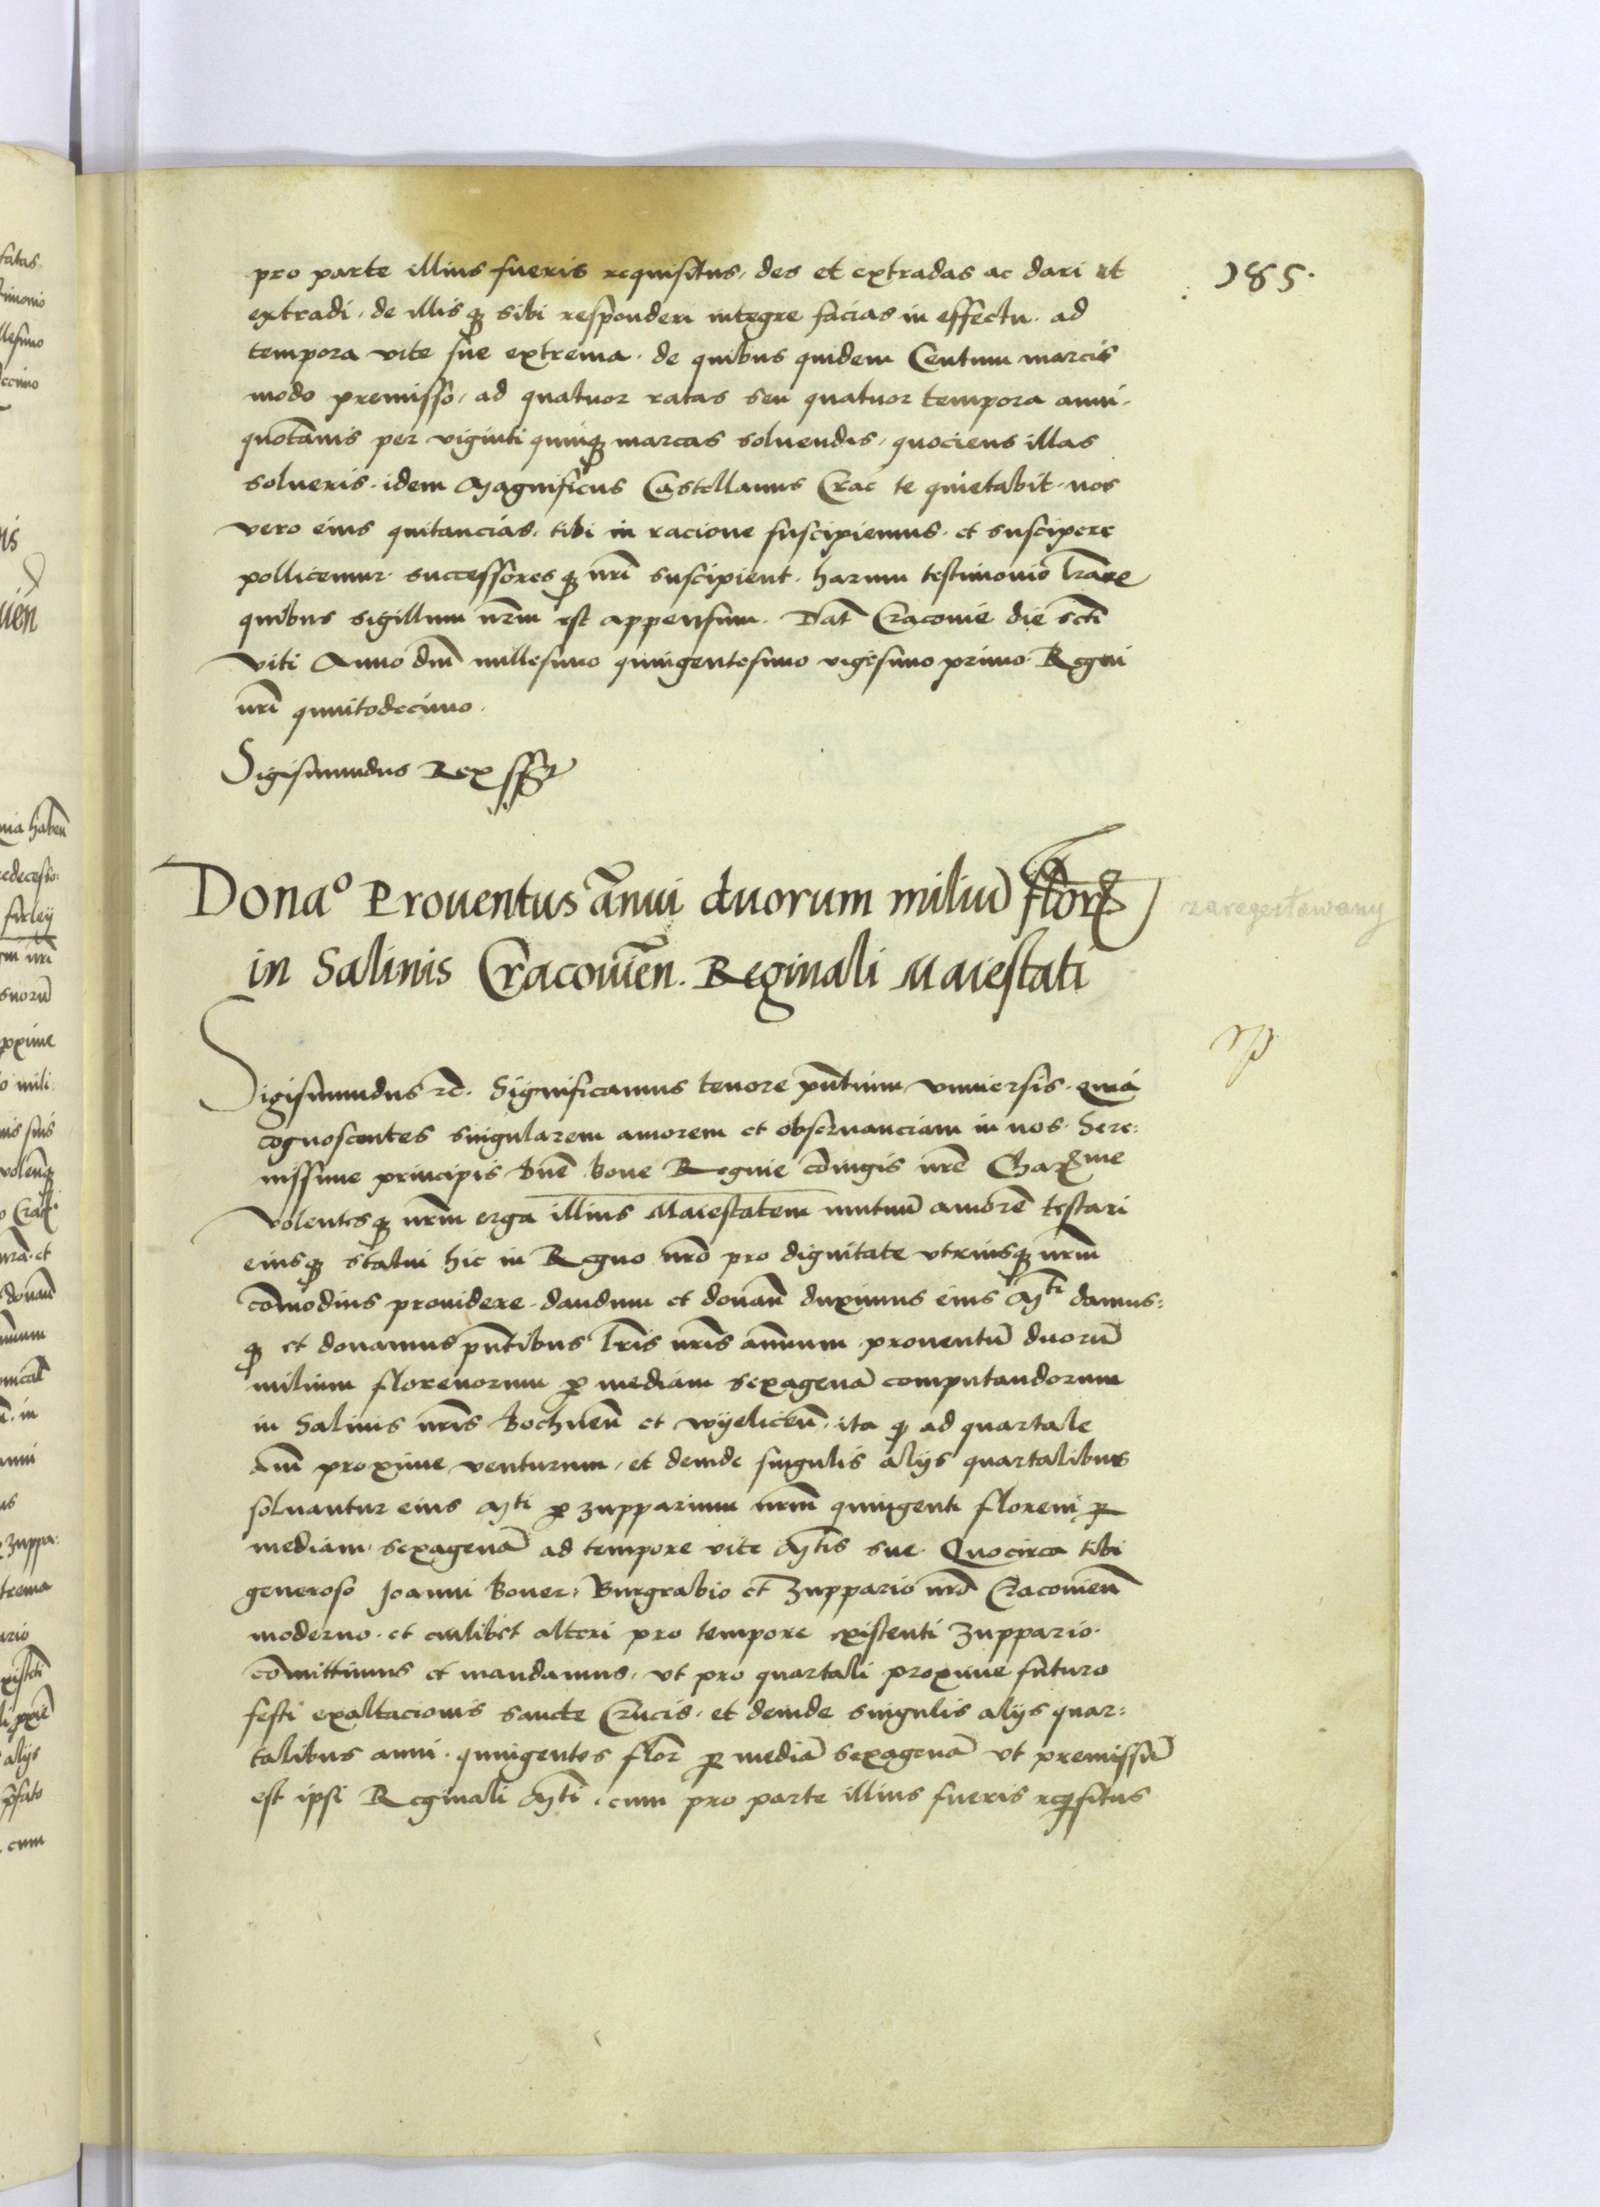 185.
pro parte illius fueris requisitus, des et extradas ac dari et
extradi, de illisq sibi responderi integre facias in effectu. ad
tempora vite sue extrema. de quibus quidem Centum marcis
modo premisso, ad quatuor ratas seu quatuor tempora anni.
quotannis per viginti quinq marcas soluendis, quociens illas
solueris. idem Magnificus Castellanus Crac te quietabit. nos
vero eius quitancias, tibi in racione suscipiemus. et suscipere
pollicemur. successoresq nri suscipient. harum testimonio lrarꝫ
quibus sigillum nrm est appensum. Dat Cracouie die scti
Viti Anno dni millesimo quingentesimo vigesimo primo. Regni
nri quintodecimo.
Sigismundus Rex sst
Donaº Prouentus anui duorum miliu flor
in Salinis Cracouien. Reginali Maiestati
zaregestrowany
Sigismundus rc. Significamus tenore pntium, vniuersis. quia
cognoscentes singularem amorem et obseruanciam in nos. Sere:
nissime principis dne bone Regine coniugis nre Charme
volentesq nrm erga illius Maiestatem mutuu amore testari
eiusq statui hic in Regno nro pro dignitate vtriusq nrm
comodius prouidere. dandum et donan duximus eius Mti damus:
q et donamus pntibus lris nris annuum prouentu duoru
milium florenorum p mediam sexagena computandorum
in Salinis nris Bochnen et wyelicen. ita q ad quartale
ani proxime venturum, et deinde singulis alijs quartalibus
soluantur eius Mti p zupparium nrm quingenti floreni p
mediam sexagena ad tempore vite Mtis sue. Quocirca tibi
generoso Joanni boner. Burgrabio et zuppario nro Cracouien
moderno. et cuilibet alteri pro tempore existenti zuppario.
comittimus et mandamus, vt pro quartali proxime futuro
festi exaltacionis sancte Crucis, et deinde singulis alijs quar:
talibus anni. quingentos flor p media sexagena vt premissu
est ipsi Reginali Mti. cum pro parte illius fueris rqsitus